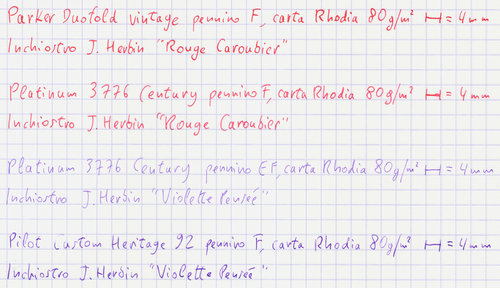 Parker Duofold vintage pennino F, carta Rhodia 80g/m² H = 4mm
Inchiostro J. Herbin "Rouge Caroubier"
Platinum 3776 Century pennino F, carta Rhodia 80g/m² H = 4mm
Inchiostro J. Herbin "Rouge Caroubier"
Platinum 3776 Century pennino EF, carta Rhodia 80g/m² H = 4mm
Inchiostro J. Herbin "Violette Penseé"
Pilot Custom Heritage 92 pennino F, carta Rhodia 80g/m² H = 4mm
Inchiostro J. Herbin "Violette Penseé"